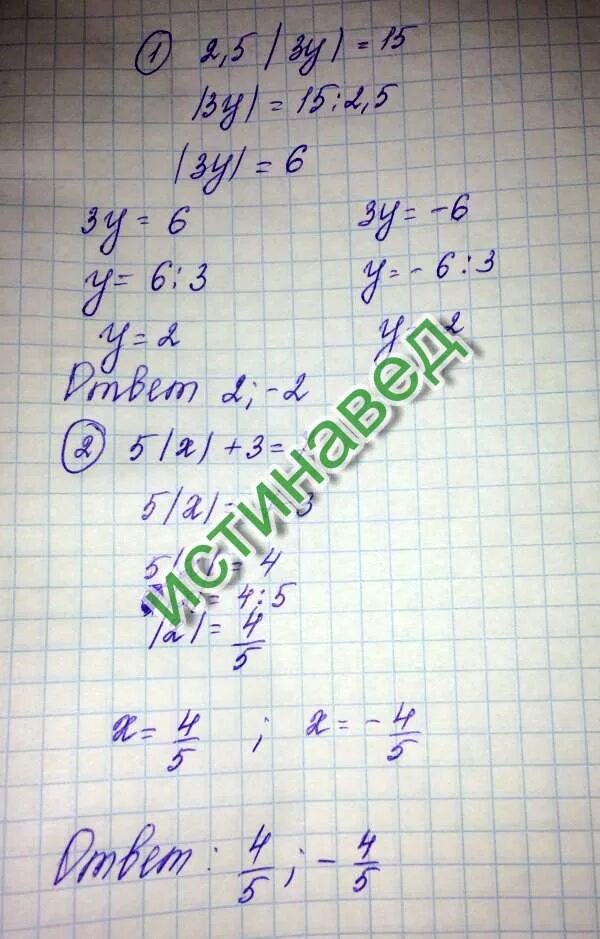 ① 2,5 |3y| = 15
|3y| = 15:2,5
|3y| = 6
3y = 6 3y = -6
y = 6:3 y = -6:3
y = 2 y 2
Ответ 2; -2
② 5|x| + 3 =
5|x| = 3
5| | = 4
= 4:5
|2| = 4/5
x = 4/5 ; x = -4/5
Ответ: 4/5; -4/5
истинавед